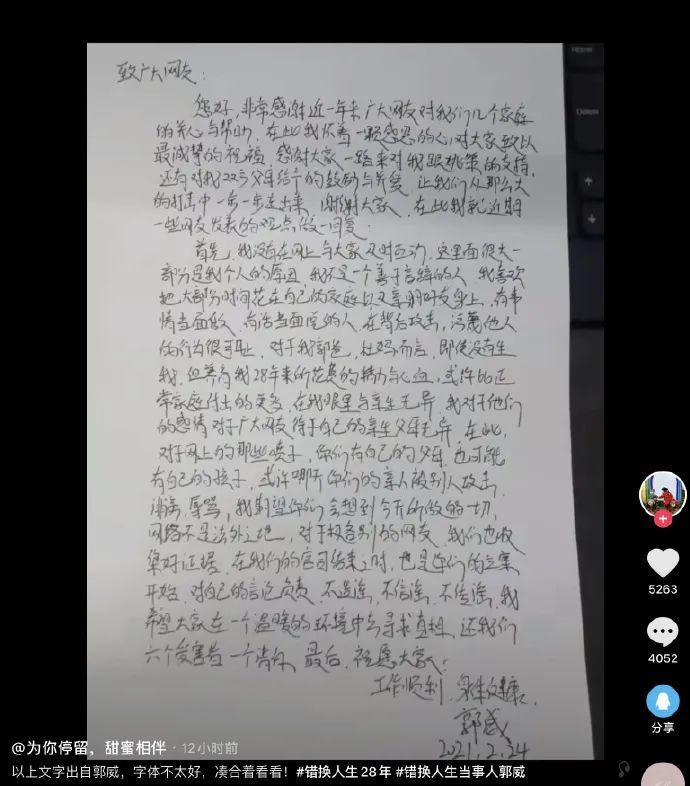 致广大网友:
您好,非常感谢近一年来广大网友对我们几个家庭
的关心与帮助,在此我怀着一颗感恩的心对大家致以
最诚挚的祝福,感谢大家一路来对我跟姚策的支持,
还有对我 父母给予的鼓励与关爱,让我们从那么大
的打击中一步一步走出来,谢谢大家,在此我就近期
一些网友发表的观点,做一回复:
首先,我没有在网上与大家及时互动,这里面很大一
部分是我个人的原因,我不是一个善于言辞的人,我喜欢
把大部分时间花在自己的家庭以及亲朋好友身上,有事
情当面做,有话当面说的人,在背后攻击,污蔑他人
的行为很可耻,对于我郭爸,杜妈而言,即使没有生
我,但养育我28年来所花费的精力与心血,或许比正
常家庭付出的更多,在我眼里与亲生无异,我对于他们
的感情对于广大网友待于自己的亲生父母无异,在此,
对于网上的那些喷子,你们有自己的父母,也可能
有自己的孩子,或许哪天你们的亲人被别人攻击,
诽谤,辱骂,我期望你们会想到今天所做的一切,
网络不是法外之地,对于极各别的网友,我们也收
集好证据,在我们的官司结束之时,也是你们的立案
开始,对自己的言论负责,不造谣,不信谣,不传谣,我
希望大家在一个温暖的环境中去寻求真相,还我们
六个受害者一个清白,最后,祝愿大家:
工作顺利,身体健康,
郭威
2021.2.24
Home
Delete
5263
4052
分享
@为你停留,甜蜜相伴 · 12小时前
以上文字出自郭威,字体不太好,凑合着看看!#错换人生28年 #错换人生当事人郭威